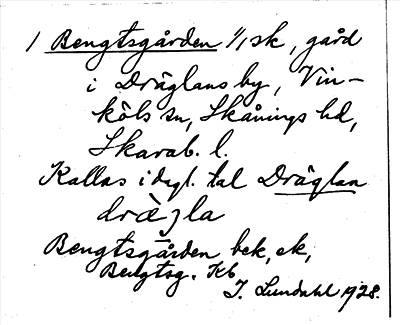 1 Bengtsgården 1/1 sk, gård
i Dräglans by, Vin-
köls sn, Skånings hd,
Skarab. l.
Kallas i dagl. tal Dräglan
dràjla
Bengtsgården bek, ek,
Bengtsg. Kb
I. Lundahl 1928.